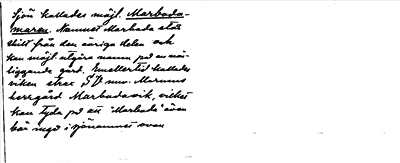 Sjön kallades möjl. Marboda-
maren. Namnet Marboda står
skilt från den övriga delen och
kan möjl. utgöra namn på en när-
liggande gård. Emellertid kallades
viken strax SV om Marums
herrgård Marbodavik, vilket
kan tyda på att "Marboda" även
här ingå i sjönamnet ovan